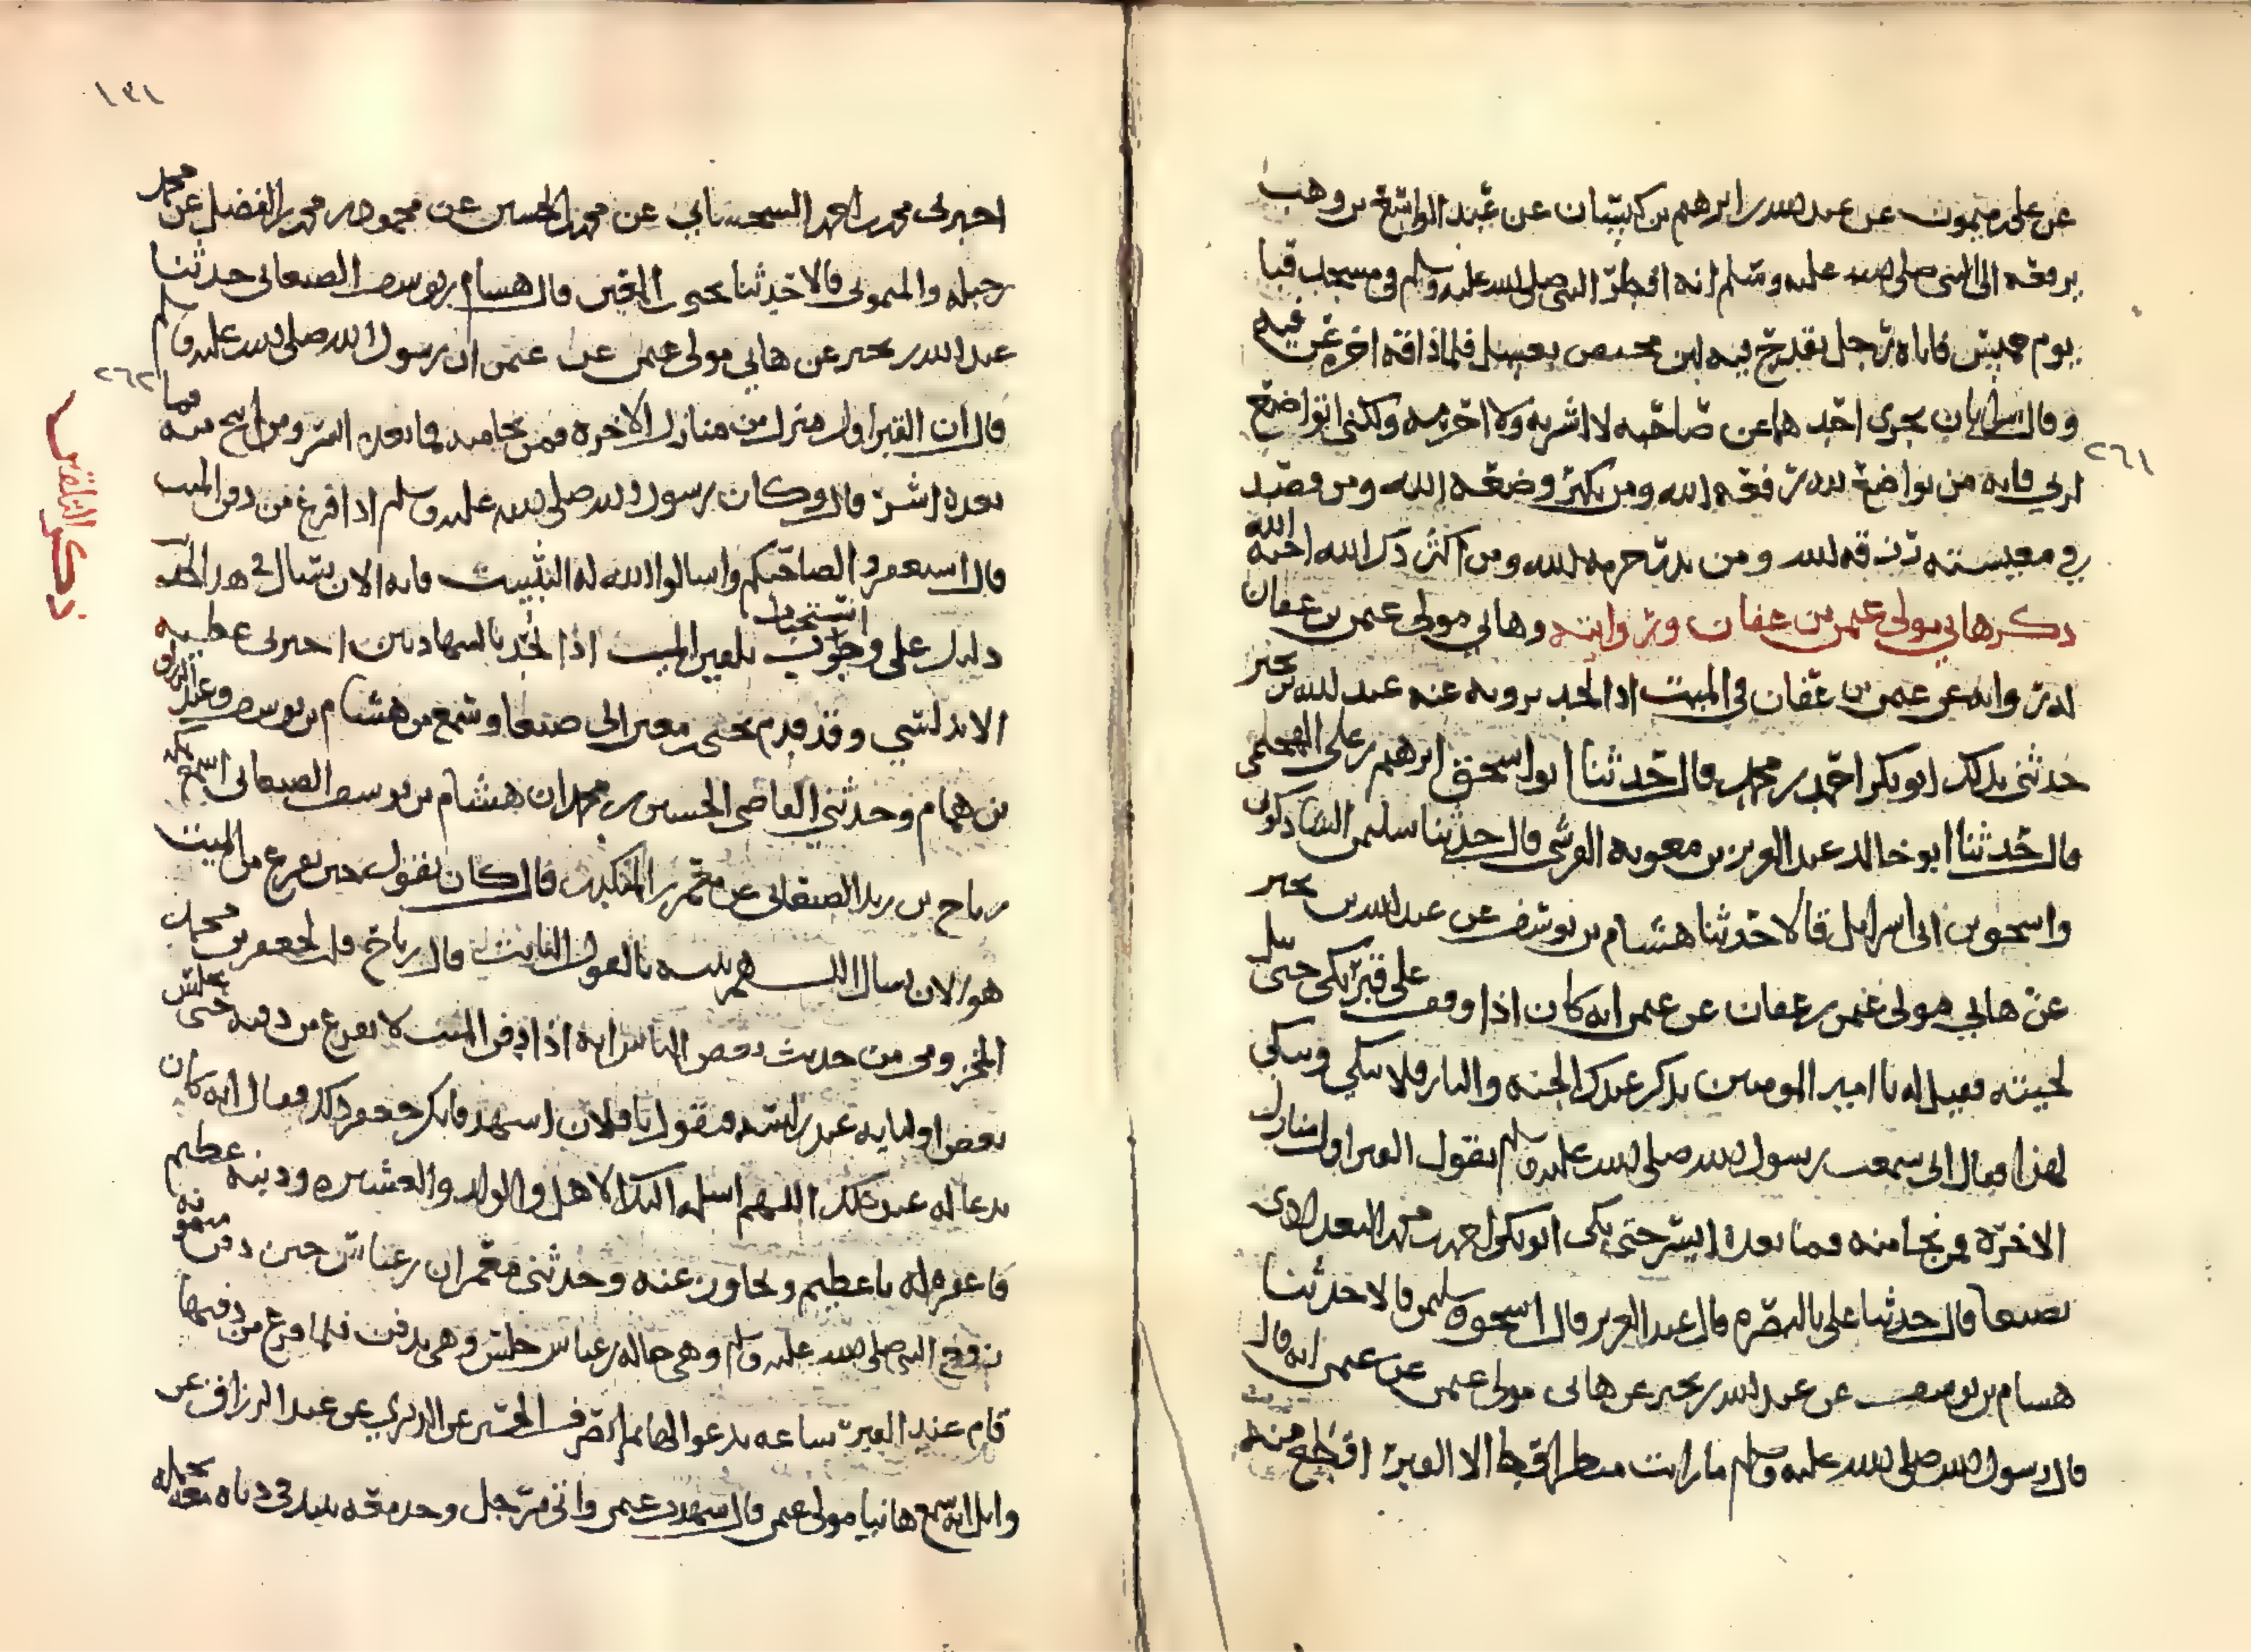 عن علي بن ميمون عن عبد الله بن ابرهيم بن كيسان عن عبد الواسع بن وهب
يرفعه الى النبي صلى الله عليه وسلم انه افطر النبي صلى الله عليه وسلم في مسجد قبا
يوم خميس فاتاه رجل بقدح فيه لبن مخيض بعسل فلما ذاقه اخره عن فيه
وقال شرابان يجزي احدهما عن صاحبه لا اشربه ولا احرمه ولكني اتواضع
٢٦١
لربي فانه من تواضع لله رفعه الله ومن تكبر وضعه الله ومن قصد
في معيشته رزقه الله ومن بذر حرمه الله ومن اكثر ذكر الله احبه الله
ذكر هاني مولى عثمن بن عفان وروايته وهاني مولى عثمن بن عفان
له رواية عن عثمن بن عفان في الميت اذا لحد يرويه عنه عبد الله بن بحير
حدثني بذلك ابو بكر احمد بن محمد قال حدثنا ابو اسحق ابرهيم بن علي
قال حدثنا ابو خالد عبد العزيز بن معوية القرشي قال حدثنا سليمن الشاذكوني
واسحق بن ابي اسرايل قالا حدثنا هشام بن يوسف عن عبد الله بن بحير
عن هاني مولى عثمن بن عفان عن عثمن انه كان اذا وقف على قبر بكى حتى يبل
لحيته فقيل له يا امير المومنين يذكر عندك الجنة والنار فلا تبكي وتبكي
لهذا فقال اني سمعت رسول الله صلى الله عليه وسلم يقول القبر اول منازل
الاخرة فمن نجا منه فما بعده ايسر حتى بكى ابو بكر احمد بن محمد البغدادي
بصنعا قال حدثنا علي بالبصرة قال عبد العزيز قال اسحق وسليمن قالا حدثنا
هشام بن يوسف عن عبد الله بن بحير عن هاني مولى عثمن عن عثمن انه قال
قال رسول الله صلى الله عليه وسلم ما رايت منظرا قط الا القبر افظع منه
١٣١
اخبرني محمد بن احمد السجستاني عن محمد بن الحسين عن محمود بن محمد بن الفضل عن محمد
بن جبلة والميموني قالا حدثنا يحيى بن المعين قال هشام بن يوسف الصنعاني حدثنا
عبد الله بن بحير عن هاني مولى عثمن عن عثمن ان رسول الله صلى الله عليه وسلم
٢٦٢
قال ان القبر اول منزل من منازل الاخرة فمن نجا منه فما بعده ايسر ومن لم ينج منه فما
بعده اشر قال وكان رسول الله صلى الله عليه وسلم اذا فرغ من دفن الميت
قال استغفروا لصاحبكم واسالوا الله له التثبيت فانه الان يسال في هذا الخبر
ذكر التلقين
دليل على وجوب استحباب تلقين الميت اذا لحد بالشهادتين اخبرني عطية
الاندلسي وقد قدم يحيى بن معين الى صنعا وسمع من هشام بن يوسف وعبد الرزاق
بن همام وحدثني القاضي الحسين بن محمد ان هشام بن يوسف الصنعاني
رباح بن زيد الصنعاني عن محمد بن المنكدر قال كان يقول حين يفرغ من الميت
هو الان يسال اللهم ثبته بالقول الثابت قال رباح قلت لجعفر بن محمد
المخزومي من حديث بعض الناس انه اذا دفن الميت لا يفرغ من دفنه حتى يجلس
بعض اوليايه عند راسه فيقول يا فلان اشهد فانكر جعفر ذلك فقال انه كان
يدعا له عند ذلك اللهم اسلمه اليك الاهل والولد والعشيرة وذنبه عظيم
فاغفر له يا عظيم وتجاوز عنه وحدثني معمر ان بن عباس حين دفن ميمونة
زوج النبي صلى الله عليه وسلم وهي خالة بن عباس جلس وهي تدفن فلما فرغ من دفنها
قام عند القبر ساعة يدعو لها ثم انصرف عن الدبري عن عبد الرزاق عن
وايل انه سمع هانيا مولى عثمن قال شهدت عثمن واتي برجل وجد معه نبيذ في دباه